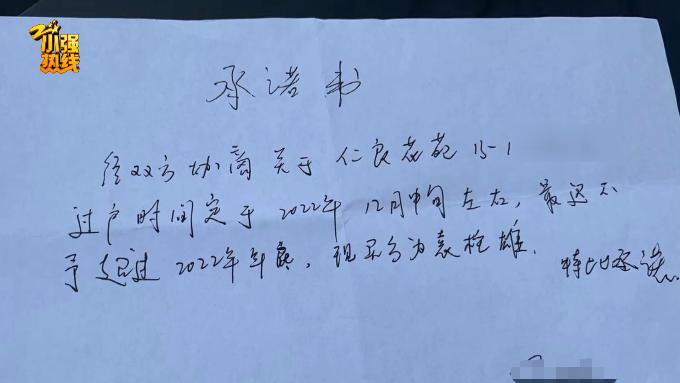 小强热线
承诺书
经双方协商关于仁良花苑15-1
过户时间定于2022年12月中旬左右，最迟不
予超过2022年年底，现买方为袁栓雄.
特此承诺.